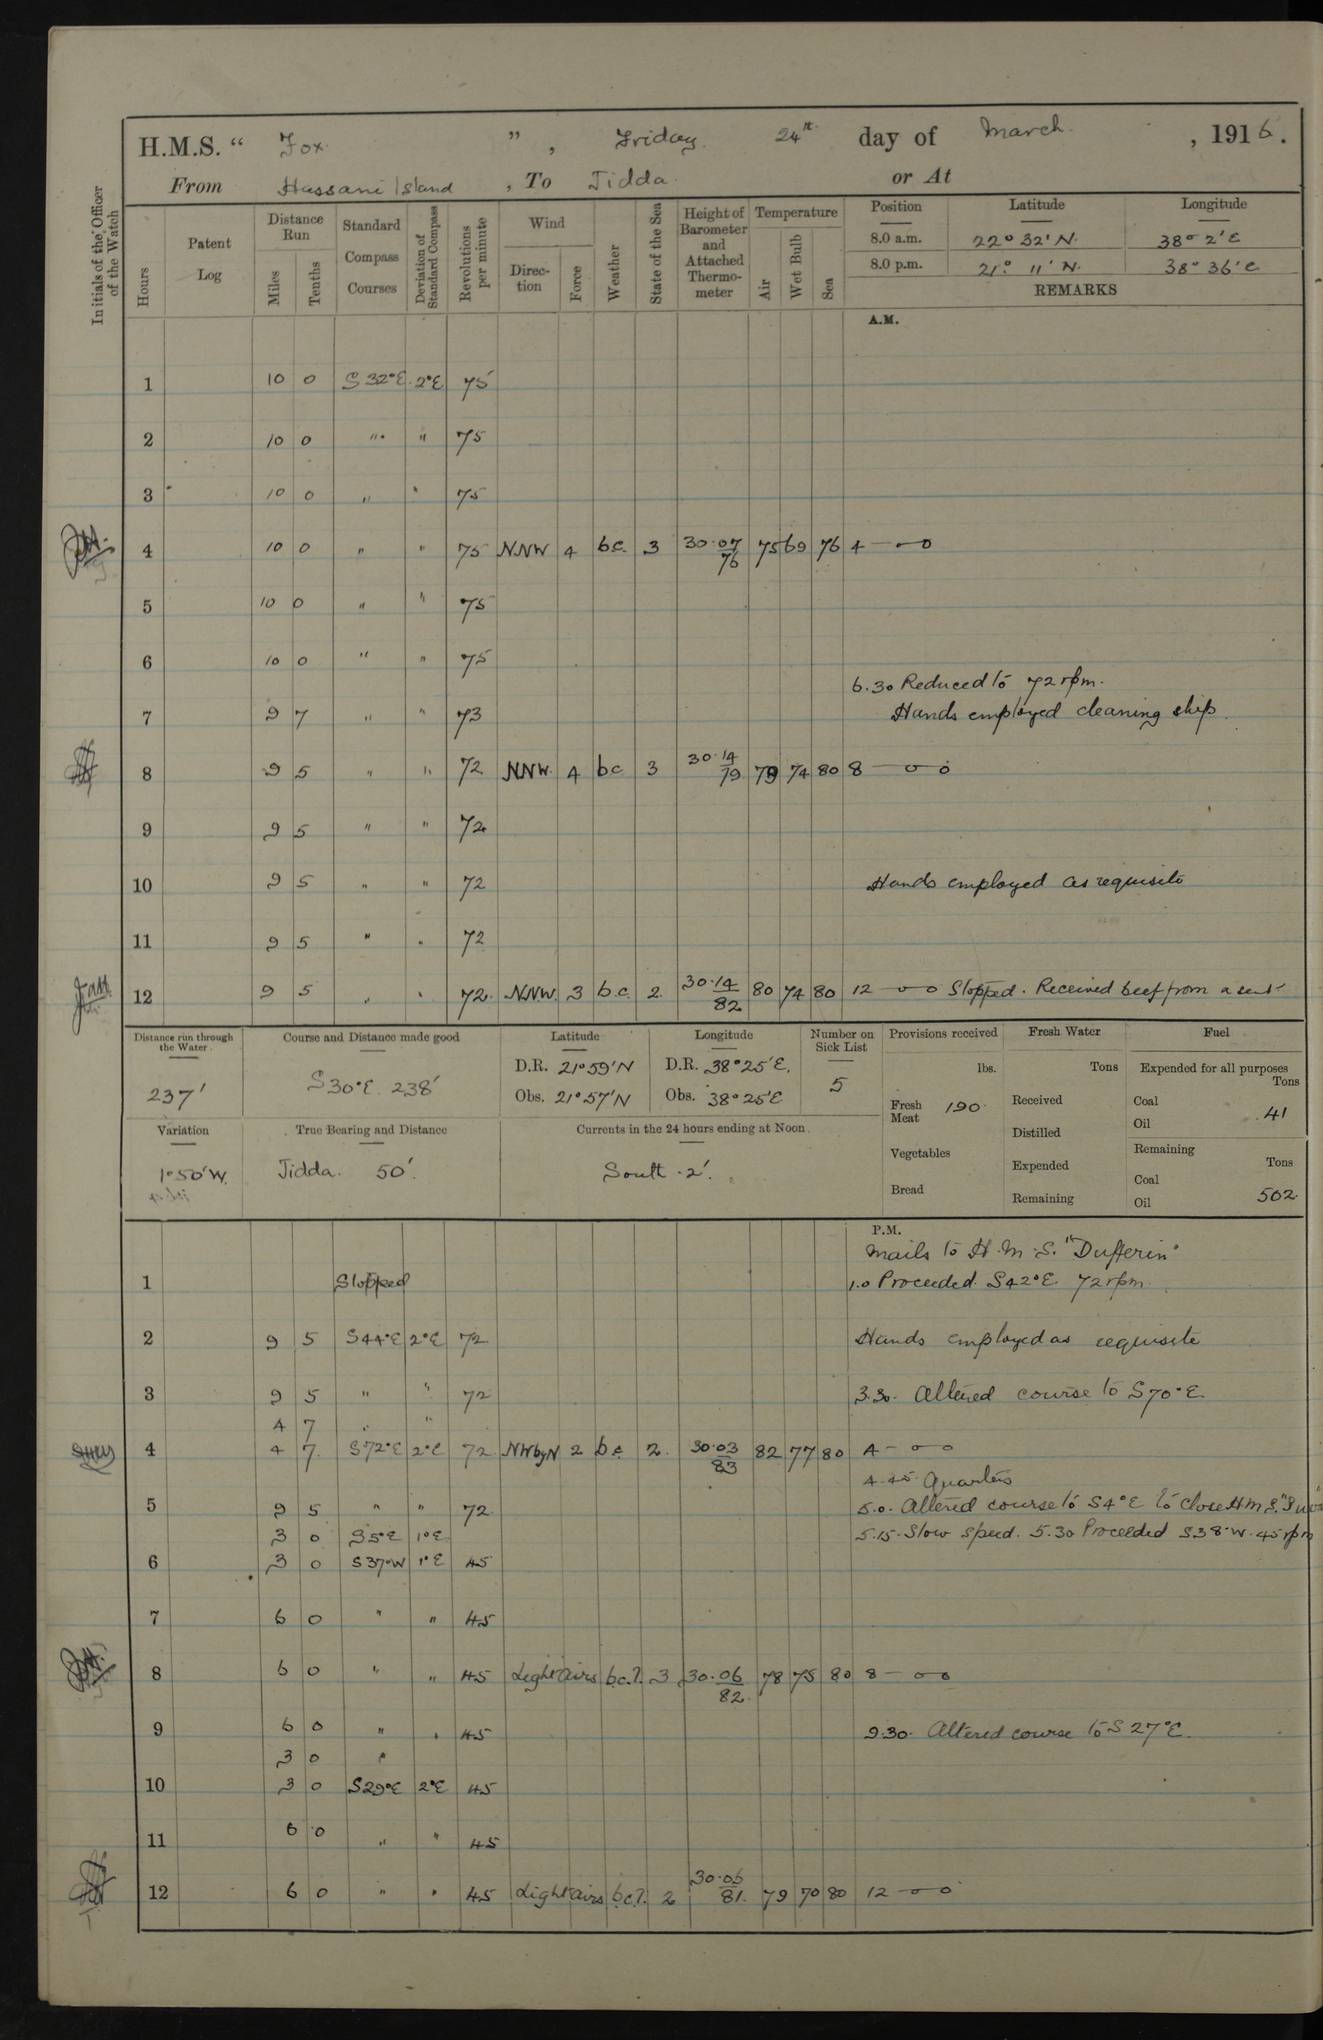 H.M.S. “ Fox ” , Friday 24th day of March , 1916.
From Hassani Island , To Jidda or At
Initials of the Officer of the Watch
Hours
Patent Log
Distance Run
Miles
Tenths
Standard Compass Courses
Deviation of Standard Compass
Revolutions per minute
Wind
Direction
Force
Weather
State of the Sea
Height of Barometer and Attached Thermometer
Temperature
Air
Wet Bulb
Sea
Position Latitude Longitude
8.0 a.m. 22° 32' N. 38° 2' E
8.0 p.m. 21° 11' N. 38° 36' E
REMARKS
A.M.
1 10 0 S 32° E. 2° E 75
2 10 0 " " 75
3 10 0 " " 75
4 10 0 " " 75 NNW 4 b.c. 3 30.07 76 75 69 76 4 — o—o
5 10 0 " " 75
6 10 0 " " 75
6.30 Reduced to 72 rpm.
7 9 7 " " 73 Hands employed cleaning ship.
8 9 5 " " 72 NNW. 4 bc 3 30.14 79 79 74 80 8 — o—o
9 9 5 " " 72
10 9 5 " " 72 Hands employed as requisite
11 9 5 " " 72
12 9 5 " " 72. NNW. 3 b.c. 2. 30.14 82 80 74 80 12 — o—o Stopped. Received beef from & sent
Distance run through the Water
237'
Course and Distance made good
S 30° E. 238'
Latitude
D.R. 21° 59' N
Obs. 21° 57' N
Longitude
D.R. 38° 25' E.
Obs. 38° 25' E
Number on Sick List
5
Provisions received
lbs.
Fresh Meat 190
Vegetables
Bread
Fresh Water
Tons
Received
Distilled
Expended
Remaining
Fuel
Expended for all purposes
Tons
Coal
Oil 41
Remaining
Tons
Coal
Oil 502.
Variation
1° 50' W.
True Bearing and Distance
Jidda. 50'.
Currents in the 24 hours ending at Noon.
South . 2'.
P.M.
mails to H.M.S. "Dufferin"
1 Stopped 1.0 Proceeded. S 42° E. 72 rpm.
2 9 5 S 44° E 2° E 72 Hands employed as requisite
3 9 5 " " 72 3.30. Altered course to S 70° E.
4 7 " "
4 4 7. S 72° E 2° E 72. NWbyN 2 b.c. 2. 30.03 83 82 77 80 4 — o—o
4.45. Quarters
5 9 5 " " 72 5.0. Altered course to S 4° E to close H.M.S.
3 0 S 5° E 1° E 5.15. Slow speed. 5.30 Proceeded S 38° W. 45 rpm
6 3 0 S 37° W 1° E 45
7 6 0 " " 45
8 6 0 " " 45 Light airs b.c.l. 3 30.06 82. 78 75 80 8 — o—o
9 6 0 " " 45 9.30. Altered course to S 27° E.
3 0 "
10 3 0 S 29° E 2° E 45
11 6 0 " " 45
12 6 0 " " 45 Light airs b.c.l. 2 30.06 81. 79 70 80 12 — o—o